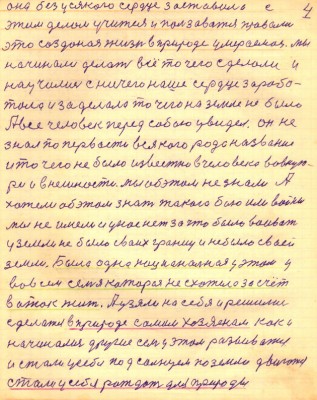 она без всякого сердце заставила с 4
этим делом учится и ползоватя правами
это созданая жизнь в природе умераемая. мы
начинали делать всё то чего сделали и
научились с ничего наше сердце зарабо-
тало и заделало то чего на земле не было
А все человек перед собою увидел. он не
знал по первасти всякого рода название
и то чего не было известно в человека вокруг
и в внешности. мы об этом не знали А
хотели об этом знат такого бою или войны
мы не имели и у нас нет за что было воеват
у земли не было своих границ и не было своей
земли. Была одна нацинальная у этом у
во всем семя каторая не схотела за счёт
в атак жит. А узяли на себя и решили
сделатя в природе самим хозяенам как и
начинали другие сем у этом развиватя
и стали у себя под солнцем по земли двигатя
стали у себя рождат для природы